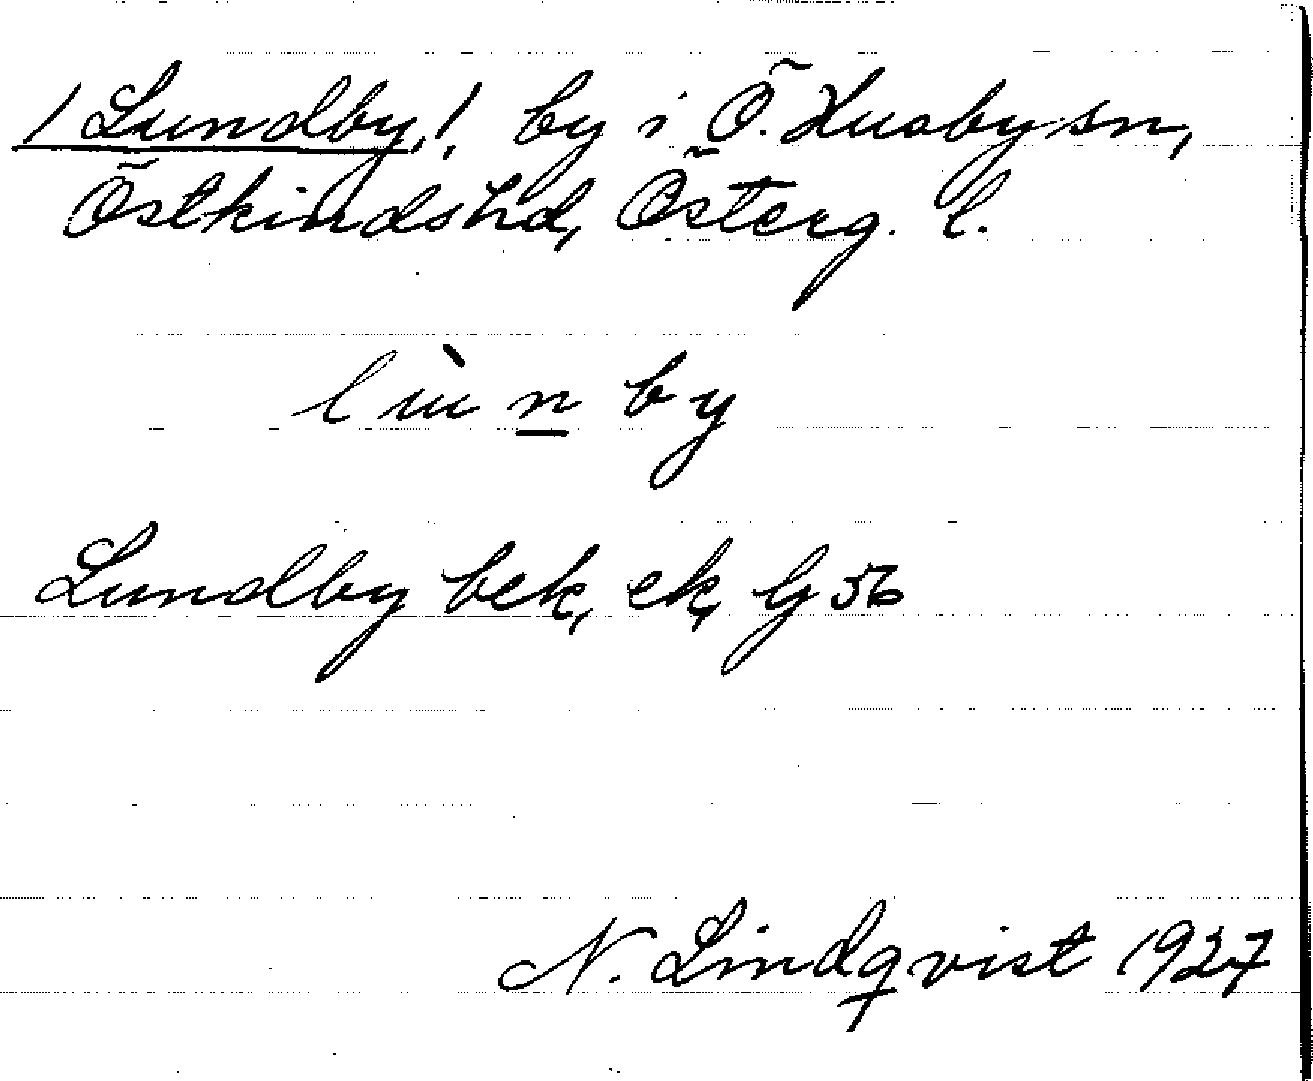 / Lundby, /, by i Ö. Husby sn,
Östkinds hd, Österg. l.
lùn by
Lundby bek, ek, G 56
N. Lindqvist 1927